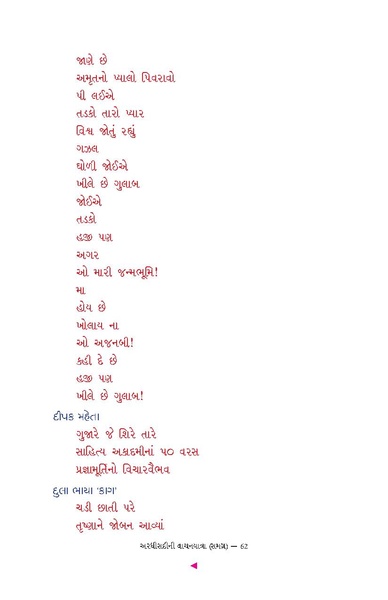 જાણે છે
અમૃતનો પ્યાલો પિવરાવો
પી લઈએ
તડકો તારો પ્યાર
વિશ્વ જોતું રહ્યું
ગઝલ
ઘોળી જોઈએ
ખીલે છે ગુલાબ
જોઈએ
તડકો
હજી પણ
અગર
ઓ મારી જન્મભૂમિ!
મા
હોય છે
ખોલાય ના
ઓ અજનબી!
કહી દે છે
હજી પણ
ખીલે છે ગુલાબ!
દીપક મહેતા
ગુજારે જે શિરે તારે
સાહિત્ય અકાદમીનાં ૫૦ વરસ
પ્રજ્ઞામૂર્તિનો વિચારવૈભવ
દુલા ભાયા ‘કાગ’
ચડી છાતી પરે
તૃષ્ણાને જોબન આવ્યાં
અરધીસદીની વાચનયાત્રા (સમગ્ર) — 62